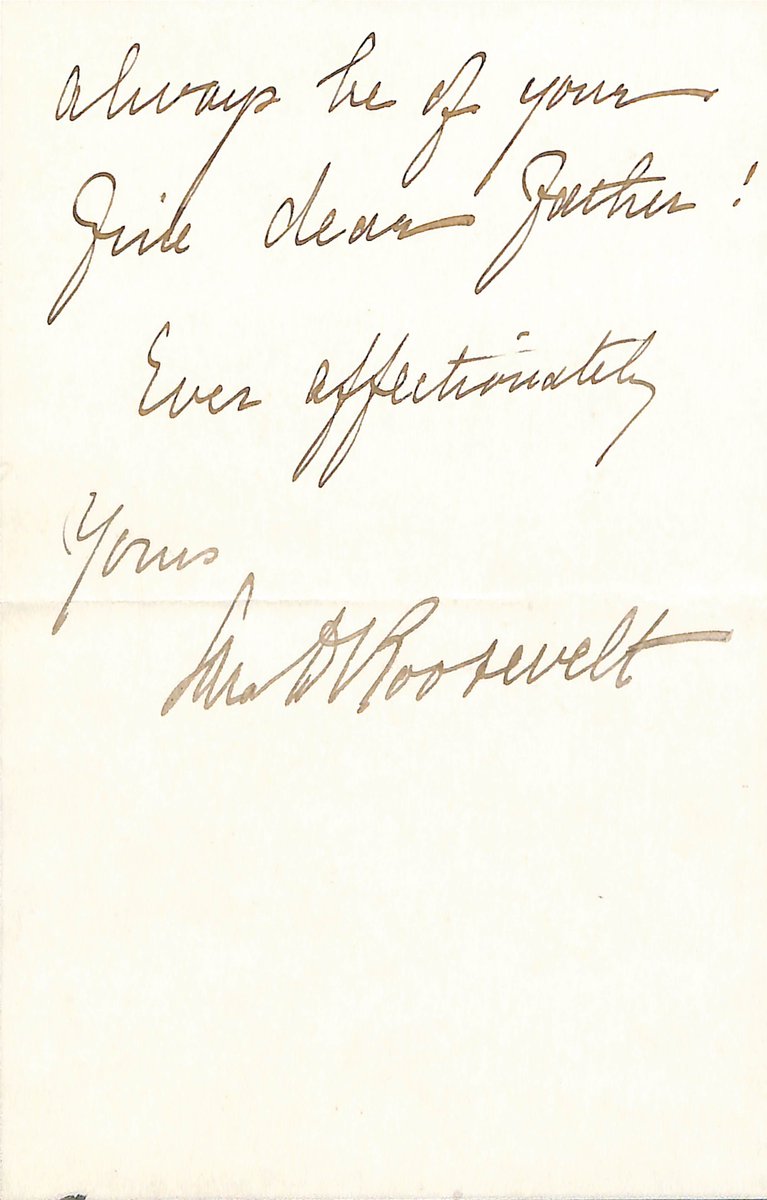 always be of your
fine dear Father!
Ever affectionately
Yours
Sara D Roosevelt